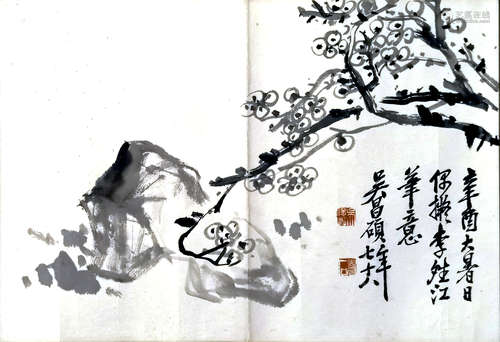 辛酉大暑日
偶擬李晴江
筆意
吳昌碩年七十八